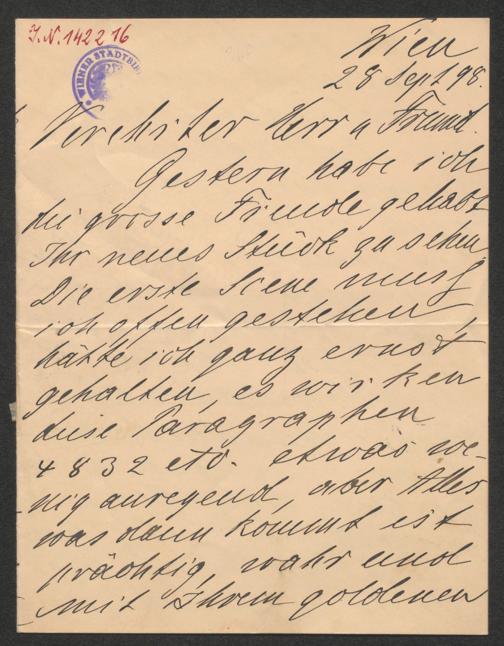 I.N. 142216
WIENER STADTBI
Wien
28 Sept 98.
Verehrter Herr u Freund.
Gestern habe ich
die grosse Freude gehabt
Ihr neues Stück zu sehen
Die erste Scene muss
ich offen gestehen,
hätte ich ganz ernst
gehalten, es wirken
diese Paragraphen
4832 etc. etwas we-
nig anregend, aber Alles
was dann kommt ist
prächtig, wahr und
mit Ihrem goldenen